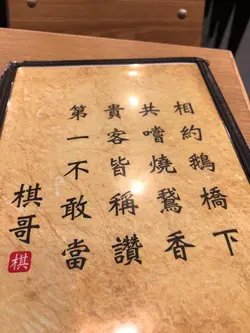 相約鵝橋下
共嚐燒鵞香
貴客皆稱讚
第一不敢當
棋哥
棋